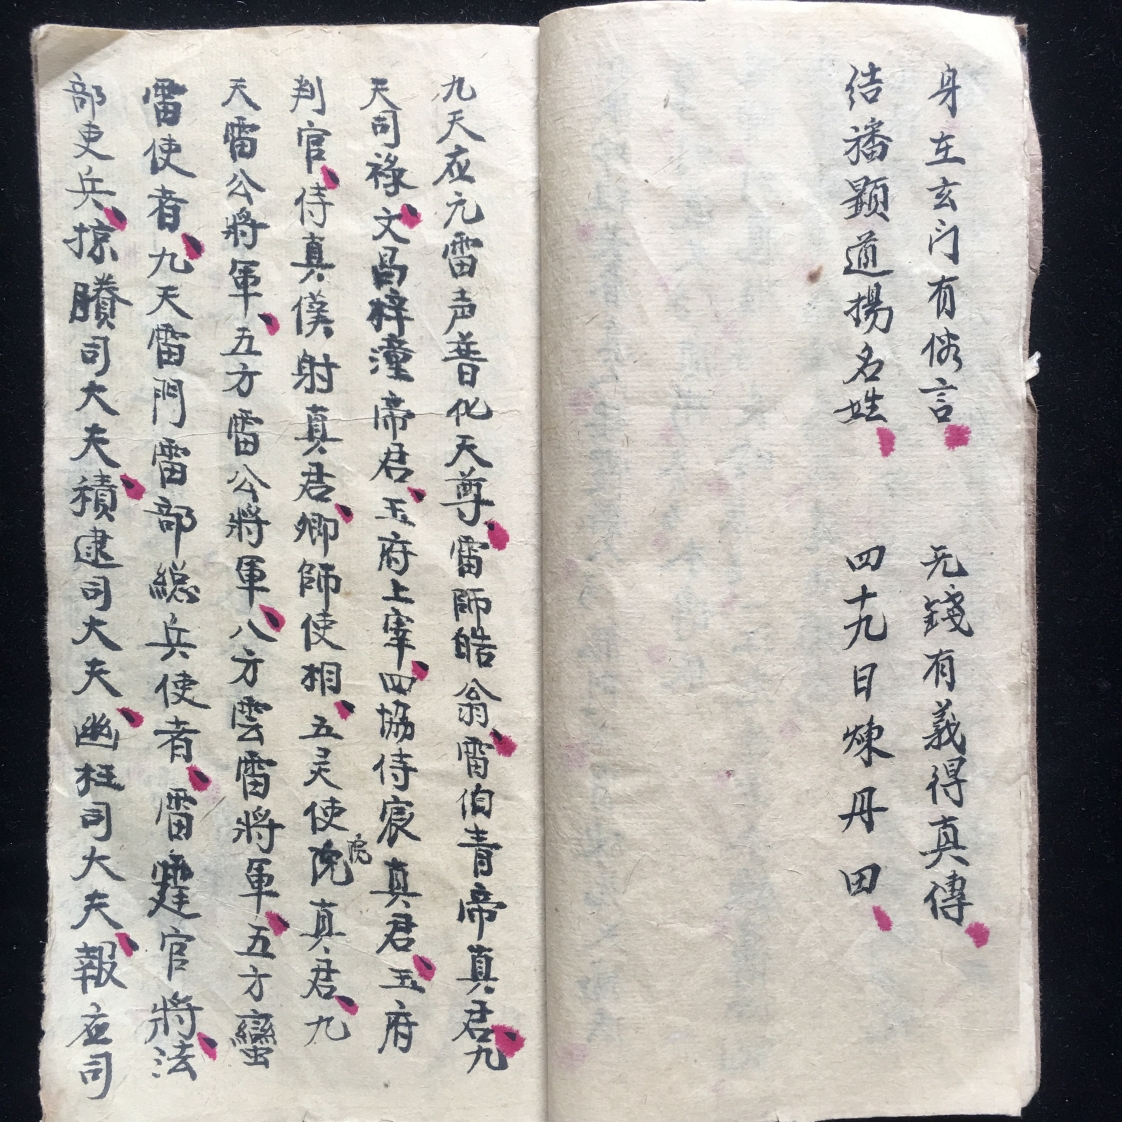 身在玄门有俗言 无錢有義得真傳
结播顕道揚名姓 四十九日煉丹田
九天应元雷声普化天尊、雷師皓翁、雷伯青帝真君、九
天司祿、文昌梓潼帝君、玉府上宰、四協侍宸真君、玉府
判官、侍真僕射真君、卿師使相、五灵使院院真君、九
天雷公將軍、五方雷公將軍、八方雲雷將軍、五方蠻
雷使者、九天雷門雷部總兵使者、雷霆官將、法
部吏兵、掠賸司大夫、積逮司大夫、幽枉司大夫、報应司